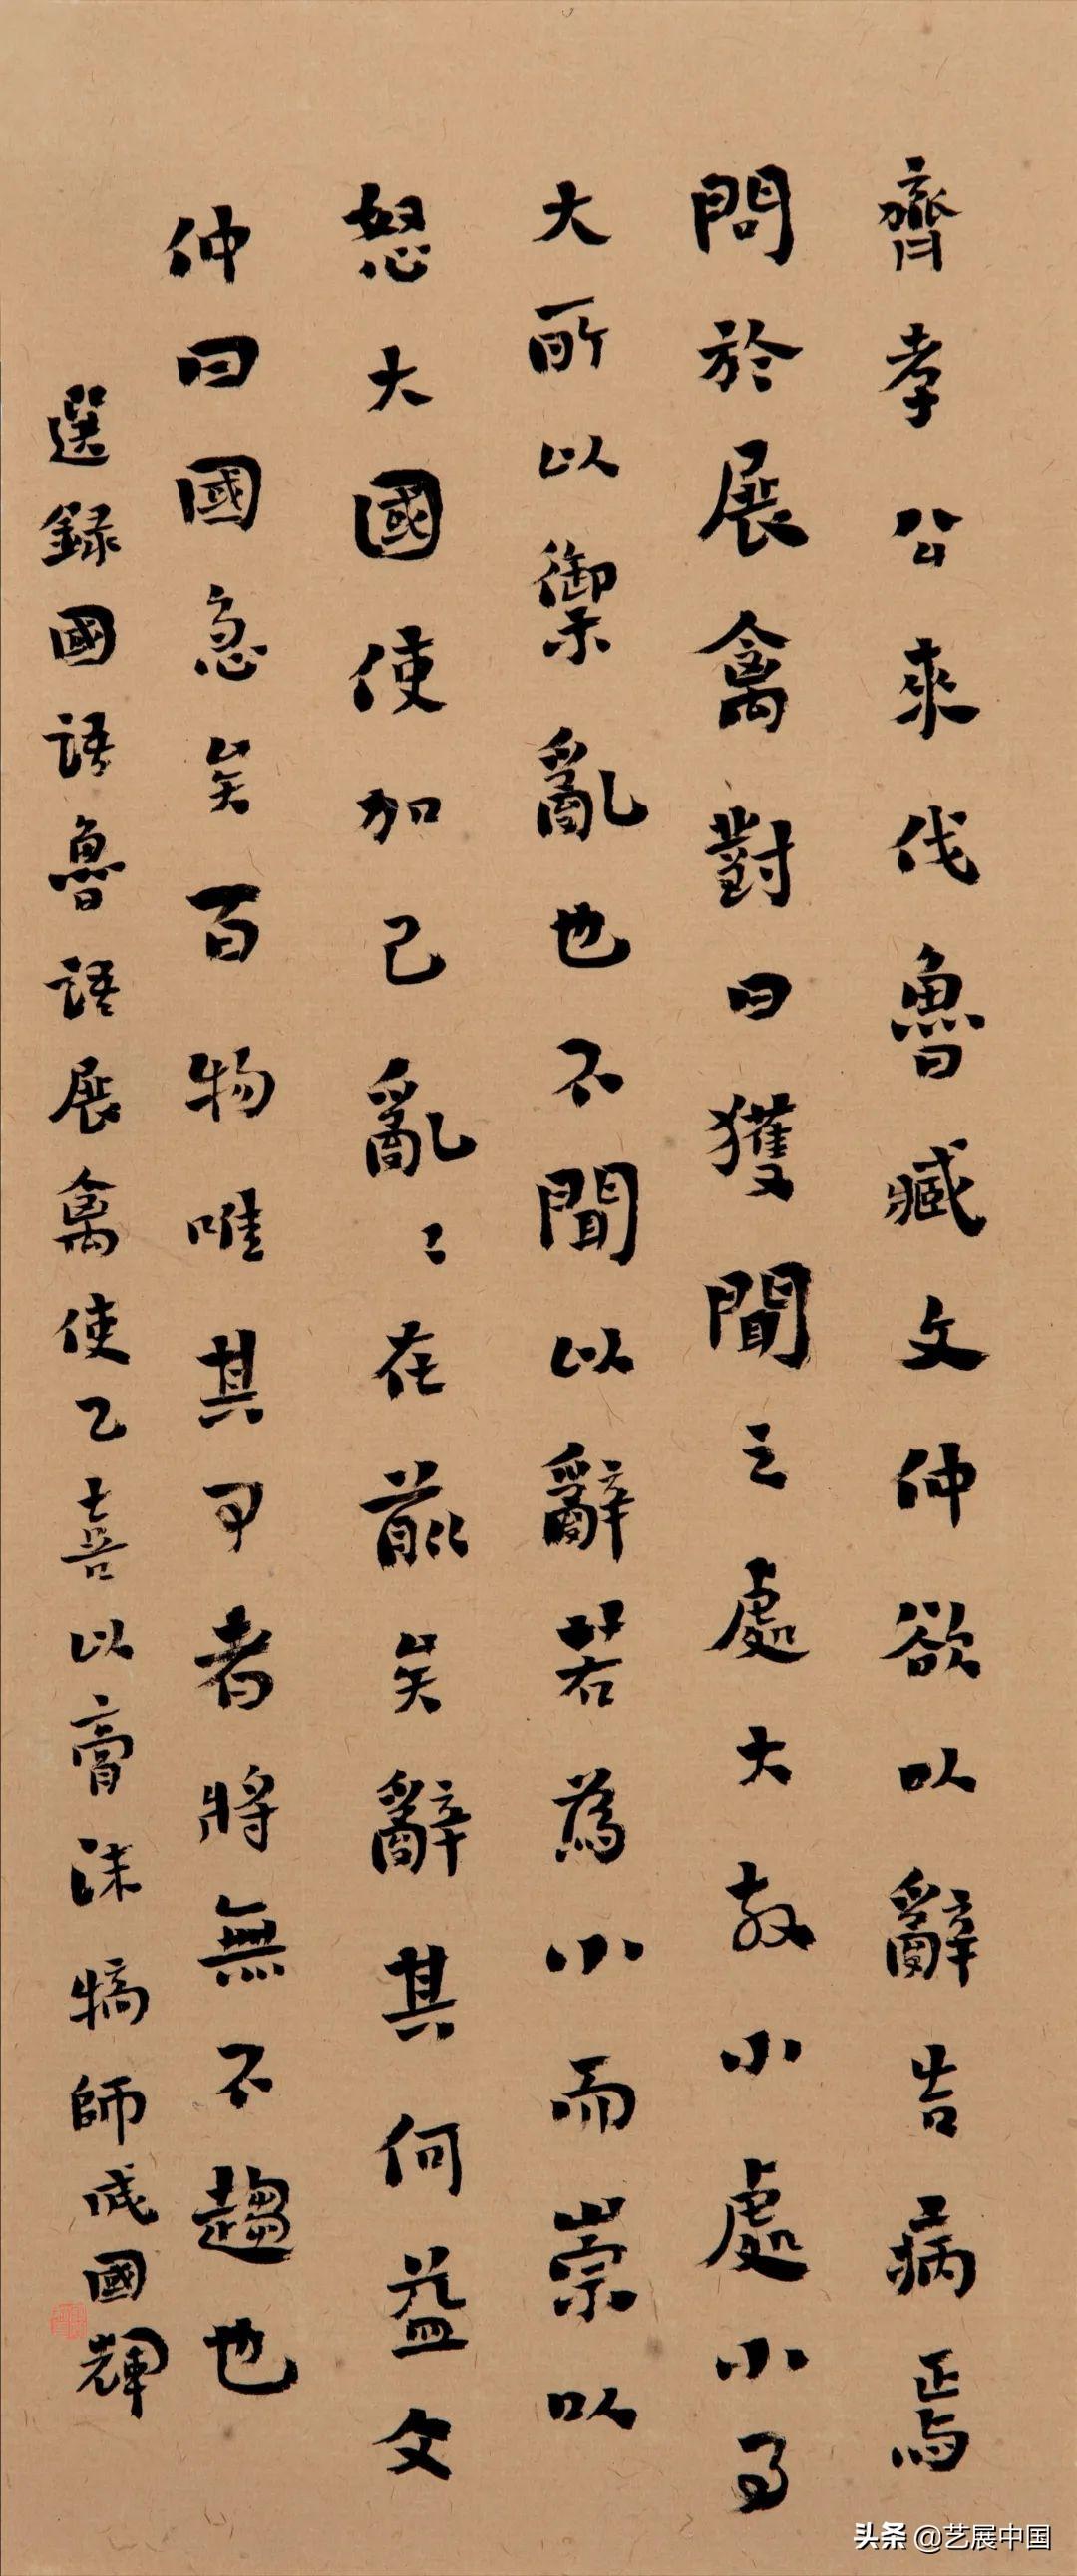 齊孝公來伐魯臧文仲欲以辭告病焉
問於展禽對曰獲聞之處大教小處小事
大所以禦亂也不聞以辭若為小而崇以
怒大國使加己亂亂在前矣辭其何益文
仲曰國急矣百物唯其可者將無不趨也
選録國語魯語展禽使乙喜以膏沫犒師成國輝
头条 @艺展中国